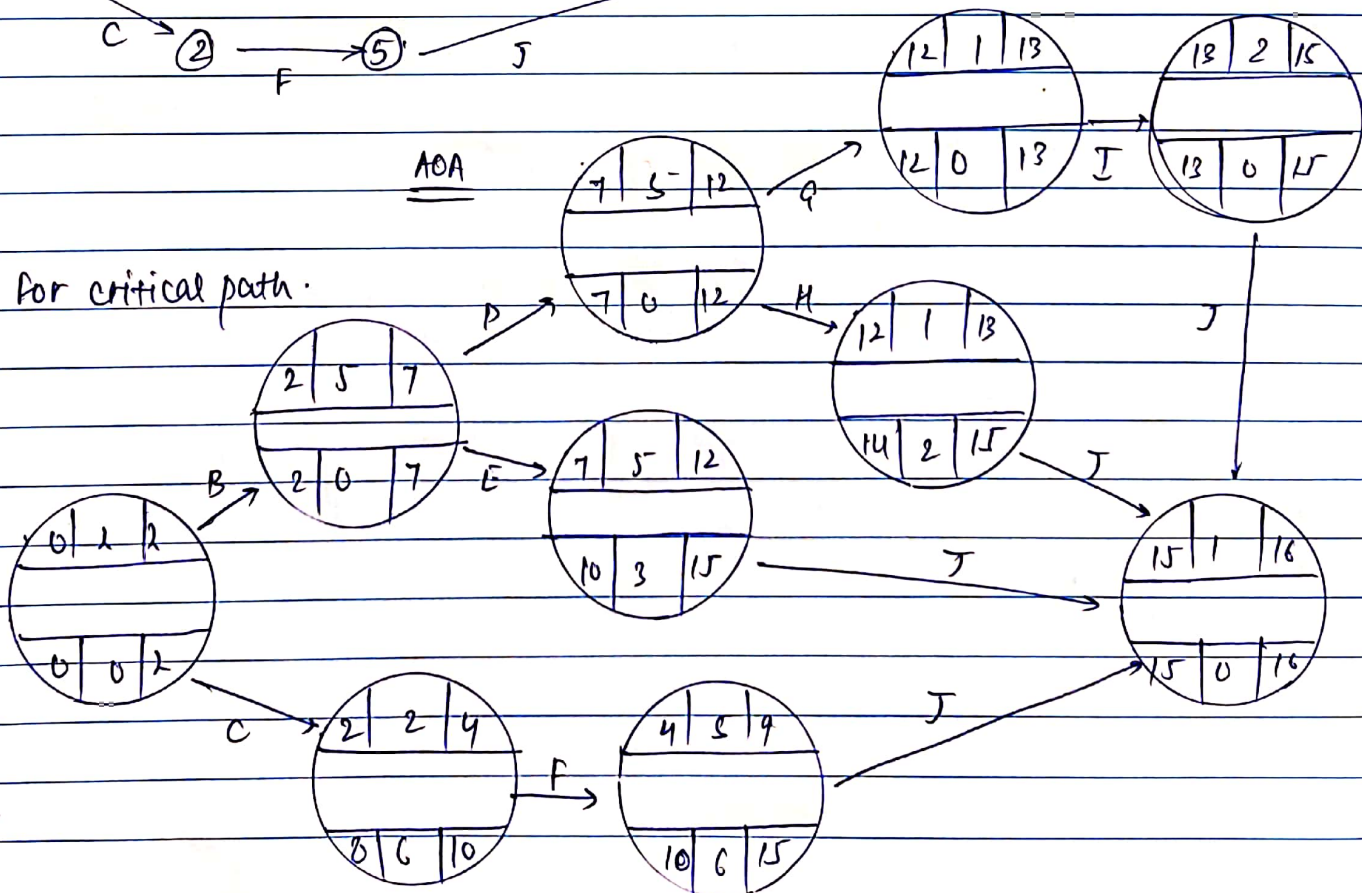 C 2 F 5 J
AOA
for critical path.
12 1 13
12 0 13
I
13 2 15
13 0 15
7 5 12
7 0 12
G
H
D
2 5 7
2 0 7
12 1 13
14 2 15
J
J
B
E
7 5 12
10 3 15
J
0 2 2
0 0 2
15 1 16
15 0 16
C
2 2 4
8 6 10
F
4 5 9
10 6 15
J